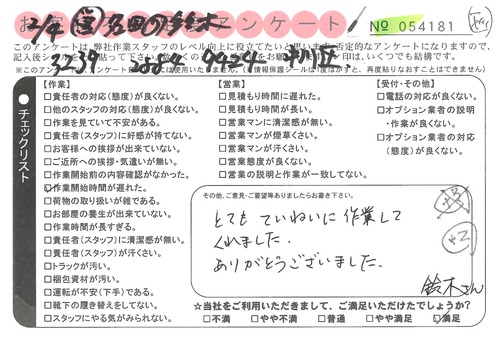 アンケート
№ 054181
このアンケートは、弊社作業スタッフのレベル向上に役立てたい
【作業】
□責任者の対応(態度)が良くない。
□他のスタッフの対応(態度)が良くない。
□作業を見ていて不安がある。
□責任者(スタッフ)に好感が持てない。
□お客様への挨拶が出来ていない。
□ご近所への挨拶・気遣いが無い。
□作業開始前の内容確認がなかった。
□作業開始時間が遅れた。
□荷物の取り扱いが雑である。
□お部屋の養生が出来ていない。
□作業時間が長すぎる。
□責任者(スタッフ)に清潔感が無い。
□責任者(スタッフ)が汗くさい。
□トラックが汚い。
□梱包資材が汚い。
□運転が不安(下手)である。
□靴下の履き替えをしてない。
□スタッフにやる気がみられない。
【営業】
□見積もり時間に遅れた。
□見積もり時間が長く感じた。
□営業マンに清潔感が無い。
□営業マンが煙草くさい。
□営業マンが汗くさい。
□営業態度が良くない。
□営業の説明と作業が一致してない。
【受付・その他】
□電話の対応が良くない。
□オプション業者の説明
・作業が良くない。
□オプション業者の対応
(態度)が良くない。
チェックリスト
その他、ご意見・ご要望等ありましたらお書き下さい。
とても ていねいに 作業して
くれました。
ありがとうございました。
鈴木さん
☆当社をご利用いただきまして、ご満足いただけたでしょうか?
□不満 □やや不満 □普通 □やや満足 □満足